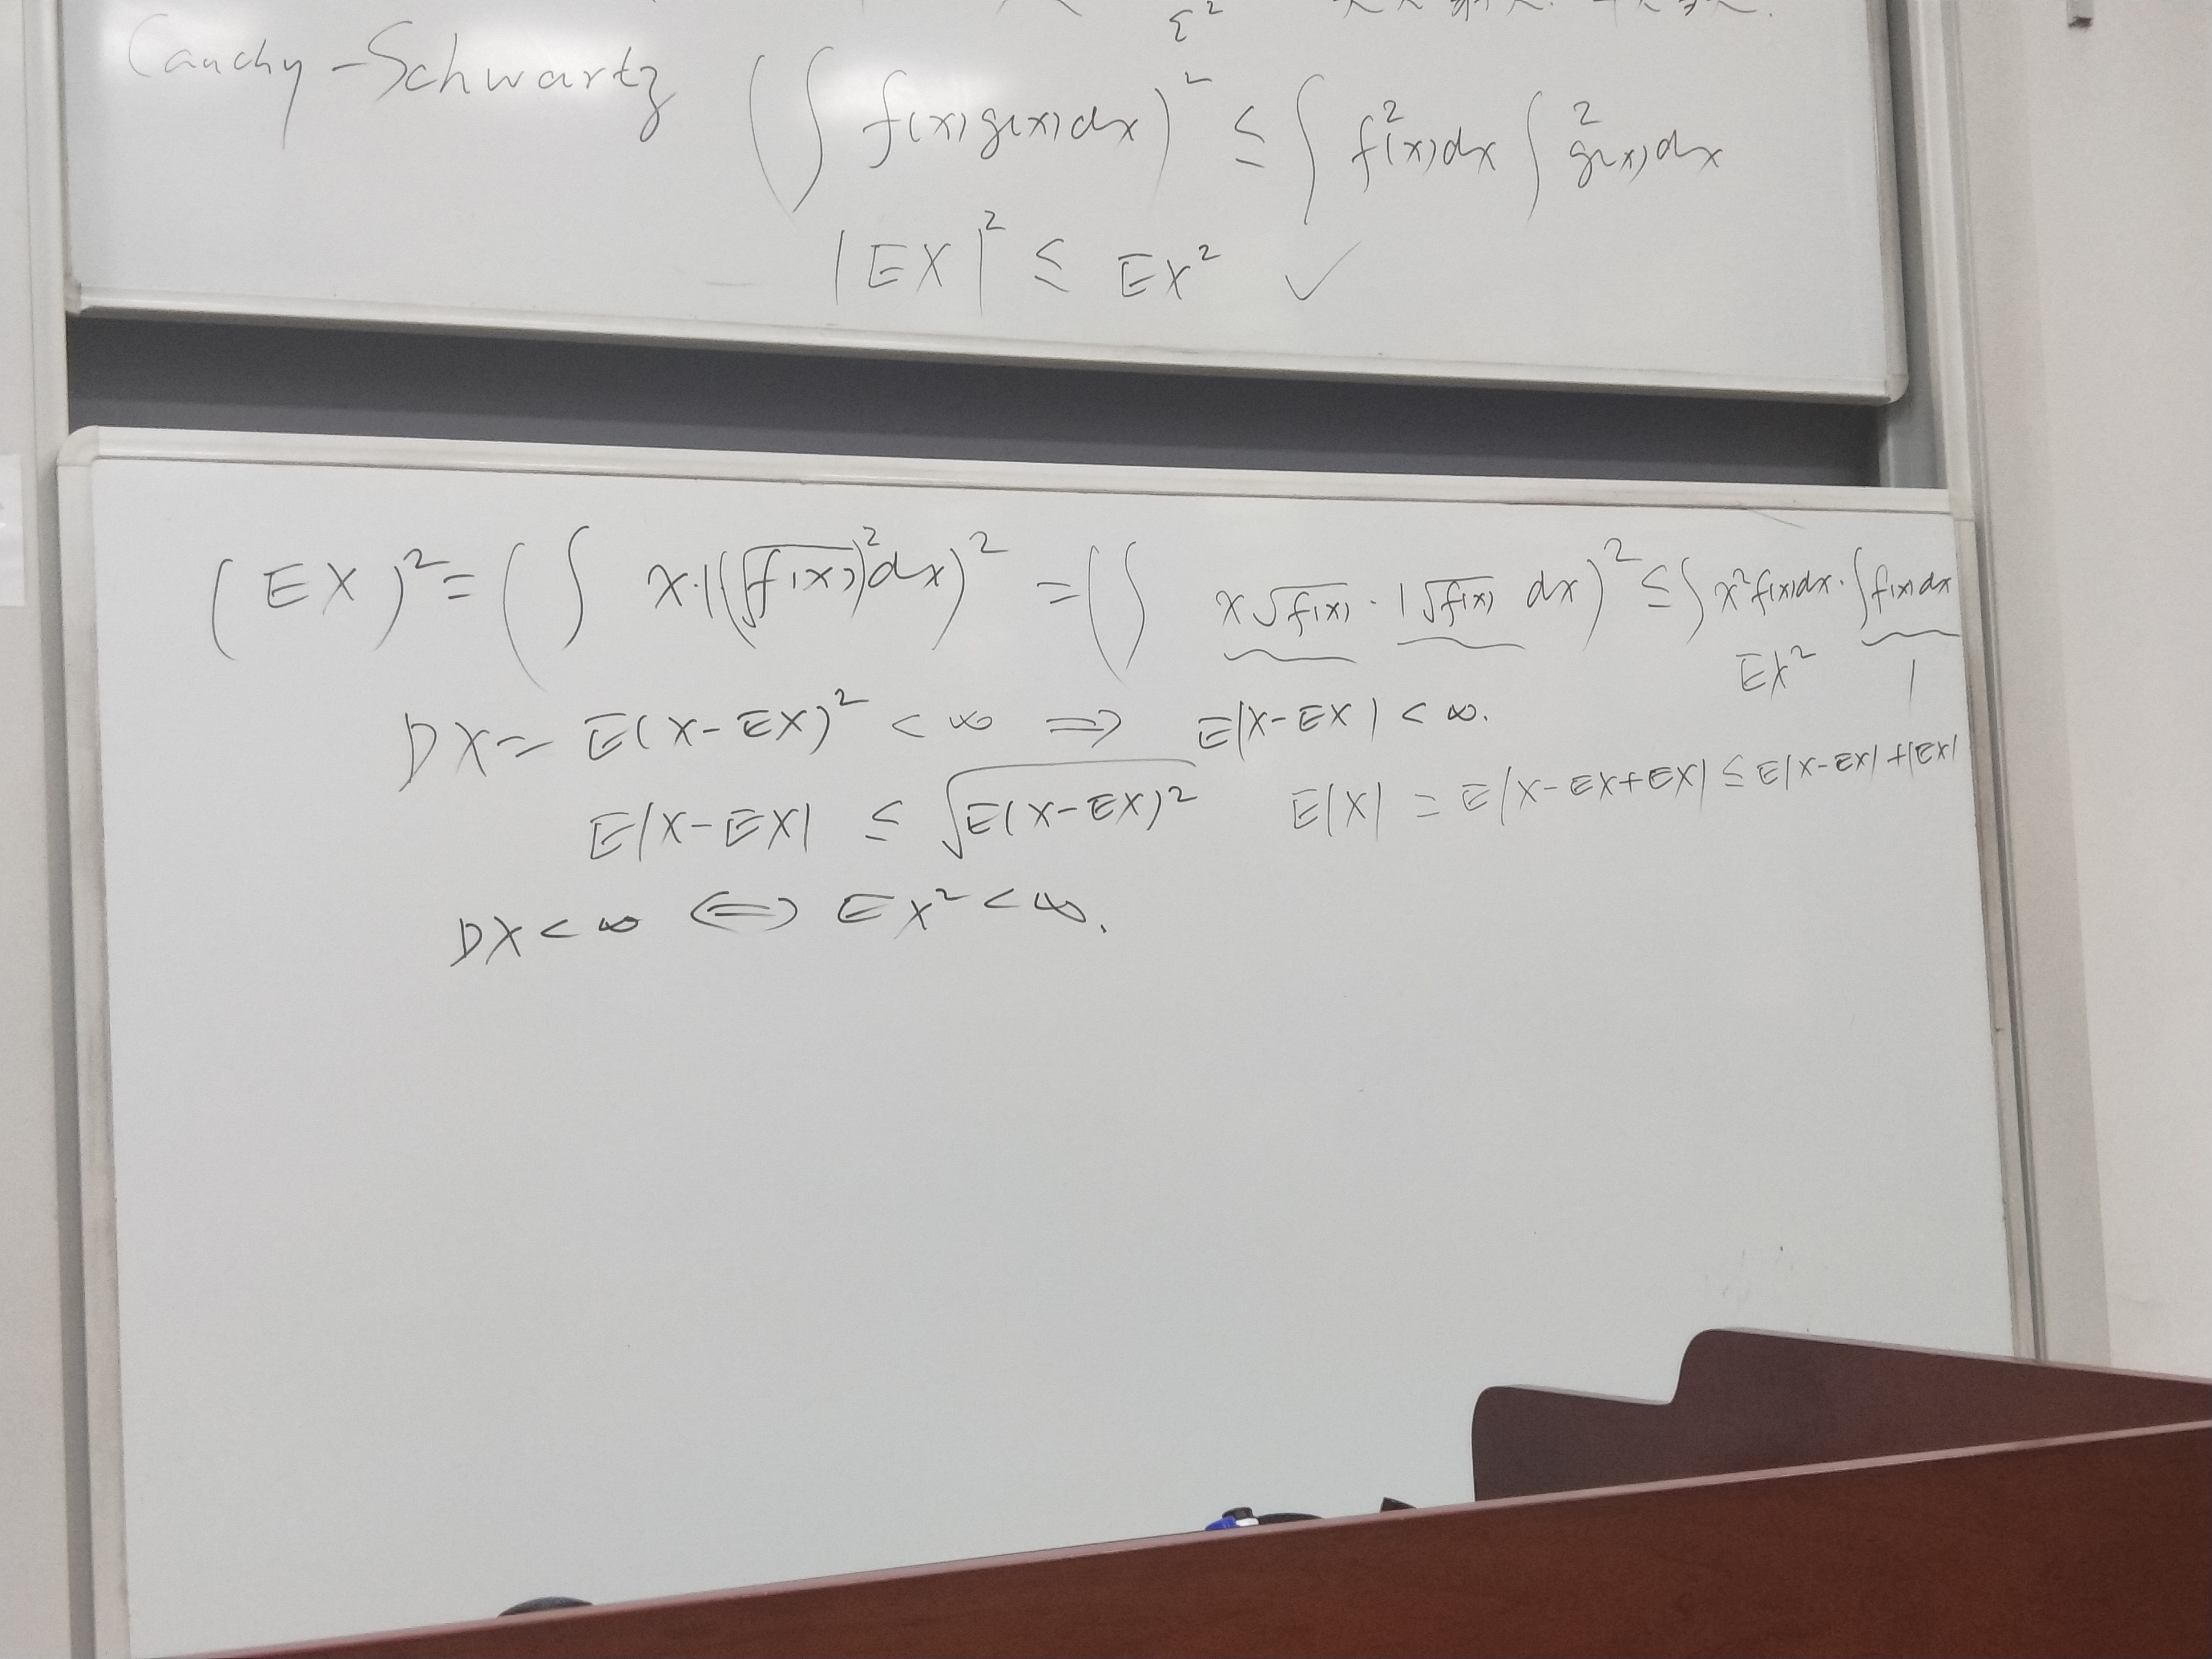 ε²
Cauchy-Schwartz (∫ f(x)g(x)dx)² ≤ ∫ f²(x)dx ∫ g²(x)dx
|EX|² ≤ EX² ✓
(EX)² = (∫ x·1(√f(x))²dx)² = (∫ x√f(x) · 1√f(x) dx)² ≤ ∫ x²f(x)dx · ∫ f(x)dx
EX² 1
DX = E(X-EX)² < ∞ ⇒ E|X-EX| < ∞.
E|X-EX| ≤ √E(X-EX)² E|X| = E|X-EX+EX| ≤ E|X-EX| + |EX|
DX < ∞ ⇔ EX² < ∞.